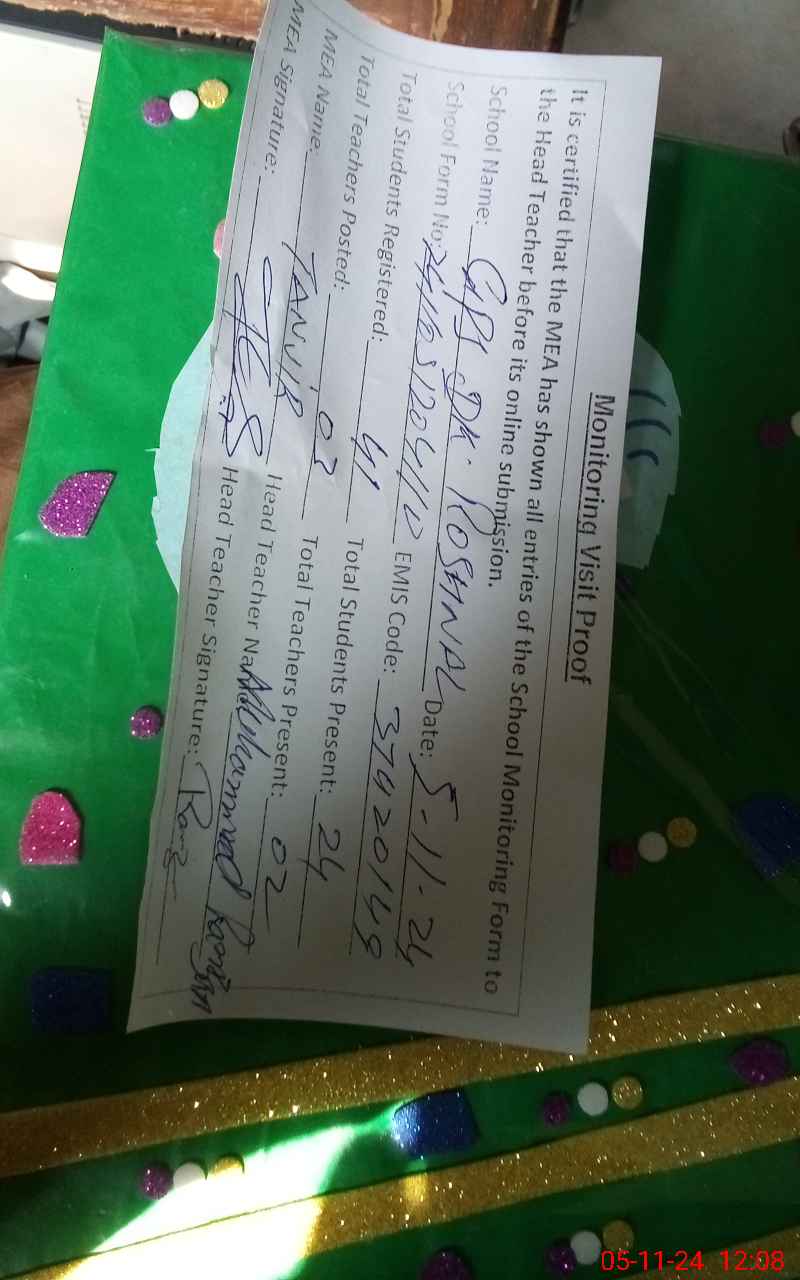 Monitoring Visit Proof
It is certified that the MEA has shown all entries of the School Monitoring Form to
the Head Teacher before its online submission.
School Name: GPS DK. ROSHNAL Date: 5-11-24
School Form No: EMIS Code: 37420149
Total Students Registered: 41 Total Students Present: 24
Total Teachers Posted: 02 Total Teachers Present: 02
MEA Name: TANVIR Head Teacher Name: Muhammad
MEA Signature: Head Teacher Signature:
05-11-24 12:08